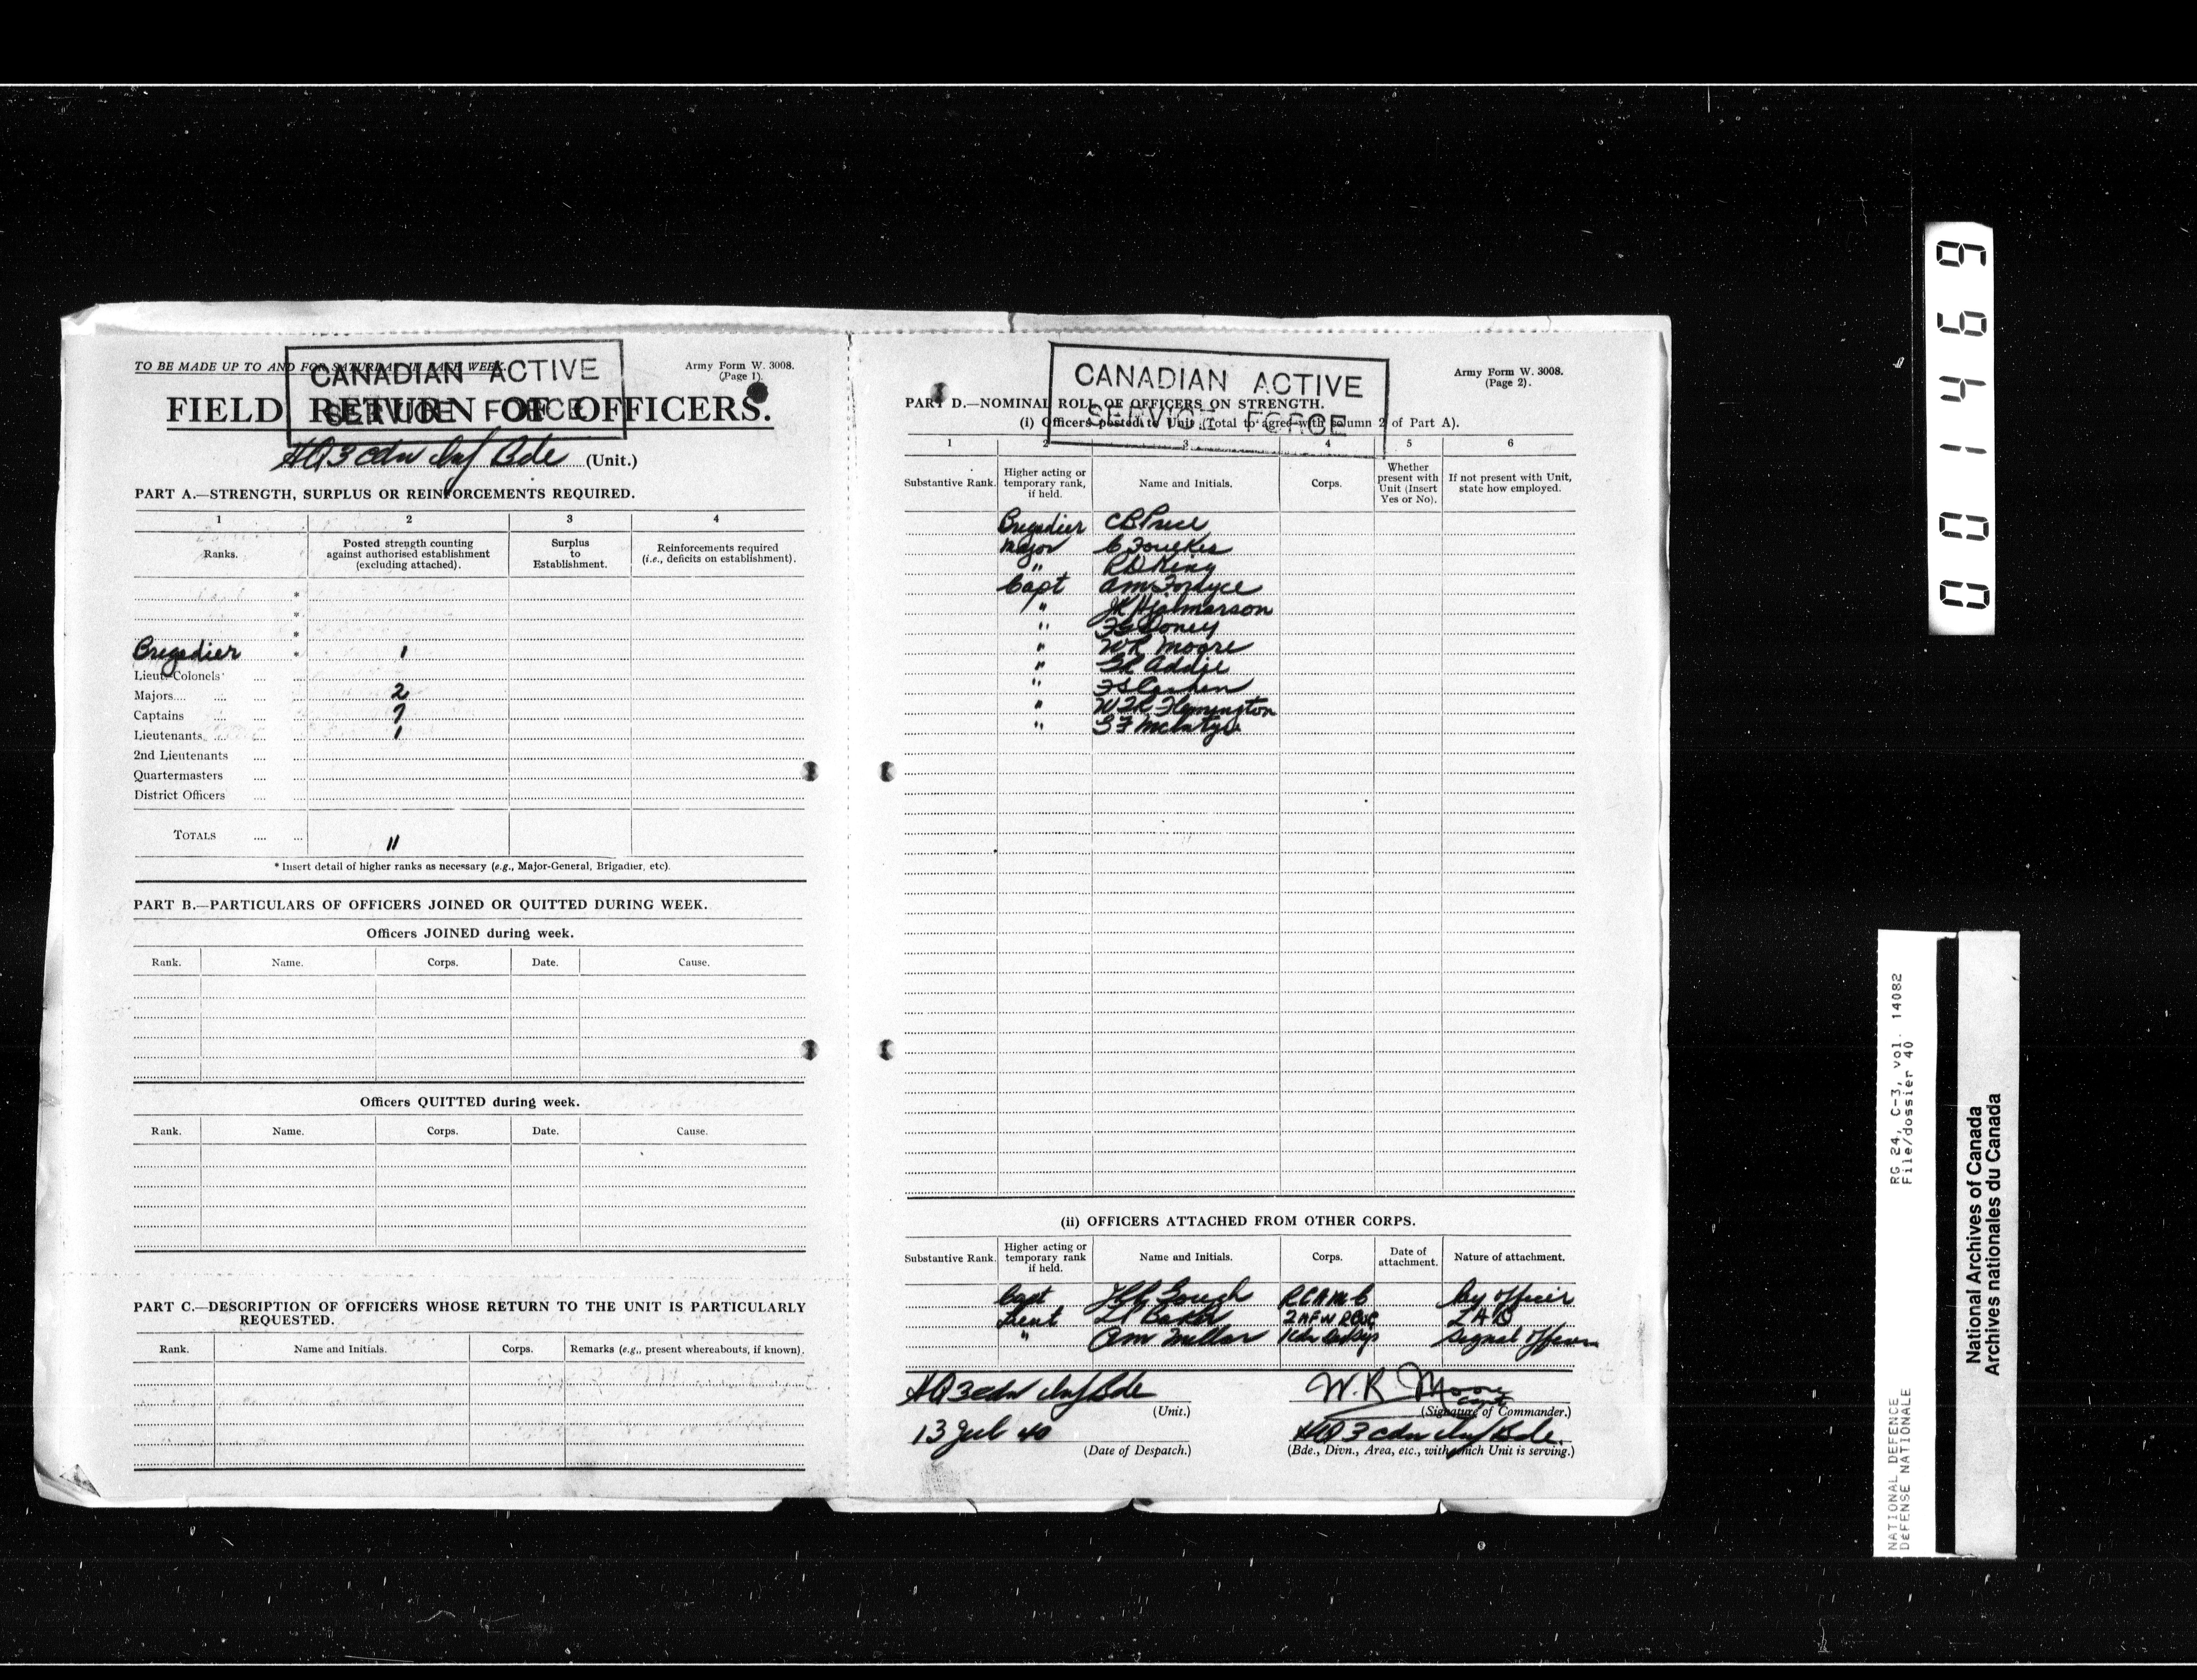 TO BE MADE UP TO AND FOR SATURDAY IN EACH WEEK.
Army Form W. 3008.
(Page 1).
CANADIAN ACTIVE
SERVICE FORCE
FIELD RETURN OF OFFICERS.
HQ 3 Cdn Inf Bde (Unit.)
PART A.—STRENGTH, SURPLUS OR REINFORCEMENTS REQUIRED.
1 2 3 4
Ranks.
Posted strength counting against authorised establishment (excluding attached).
Surplus to Establishment.
Reinforcements required (i.e., deficits on establishment).
*
*
*
Brigadier * 1
Lieut.-Colonels
Majors 2
Captains 7
Lieutenants 1
2nd Lieutenants
Quartermasters
District Officers
TOTALS 11
* Insert detail of higher ranks as necessary (e.g., Major-General, Brigadier, etc).
PART B.—PARTICULARS OF OFFICERS JOINED OR QUITTED DURING WEEK.
Officers JOINED during week.
Rank. Name. Corps. Date. Cause.
Officers QUITTED during week.
Rank. Name. Corps. Date. Cause.
PART C.—DESCRIPTION OF OFFICERS WHOSE RETURN TO THE UNIT IS PARTICULARLY
REQUESTED.
Rank. Name and Initials. Corps. Remarks (e.g., present whereabouts, if known).
CANADIAN ACTIVE
SERVICE FORCE
Army Form W. 3008.
(Page 2).
PART D.—NOMINAL ROLL OF OFFICERS ON STRENGTH.
(i) Officers posted to Unit (Total to agree with column 2 of Part A).
1 2 3 4 5 6
Substantive Rank.
Higher acting or temporary rank, if held.
Name and Initials.
Corps.
Whether present with Unit (Insert Yes or No).
If not present with Unit, state how employed.
Brigadier CB Price
Major C Foulkes
" RD King
Capt AM Fordyce
" JK Hjalmarson
" FG Doney
" WR Moore
" GR Addie
"
" WTR Flemington
" GF McIntyre
(ii) OFFICERS ATTACHED FROM OTHER CORPS.
Substantive Rank.
Higher acting or temporary rank if held.
Name and Initials.
Corps.
Date of attachment.
Nature of attachment.
Capt Gough RCAMC officer
Lieut Baker LAD
" AM Millar Signal Officer
HQ 3 Cdn Inf Bde
(Unit.)
W.R Moore Capt
(Signature of Commander.)
13 Jul 40
(Date of Despatch.)
HQ 3 Cdn Inf Bde.
(Bde., Divn., Area, etc., with which Unit is serving.)
001469
RG 24, C-3, vol. 14082
File/dossier 40
NATIONAL DEFENCE
DÉFENSE NATIONALE
National Archives of Canada
Archives nationales du Canada